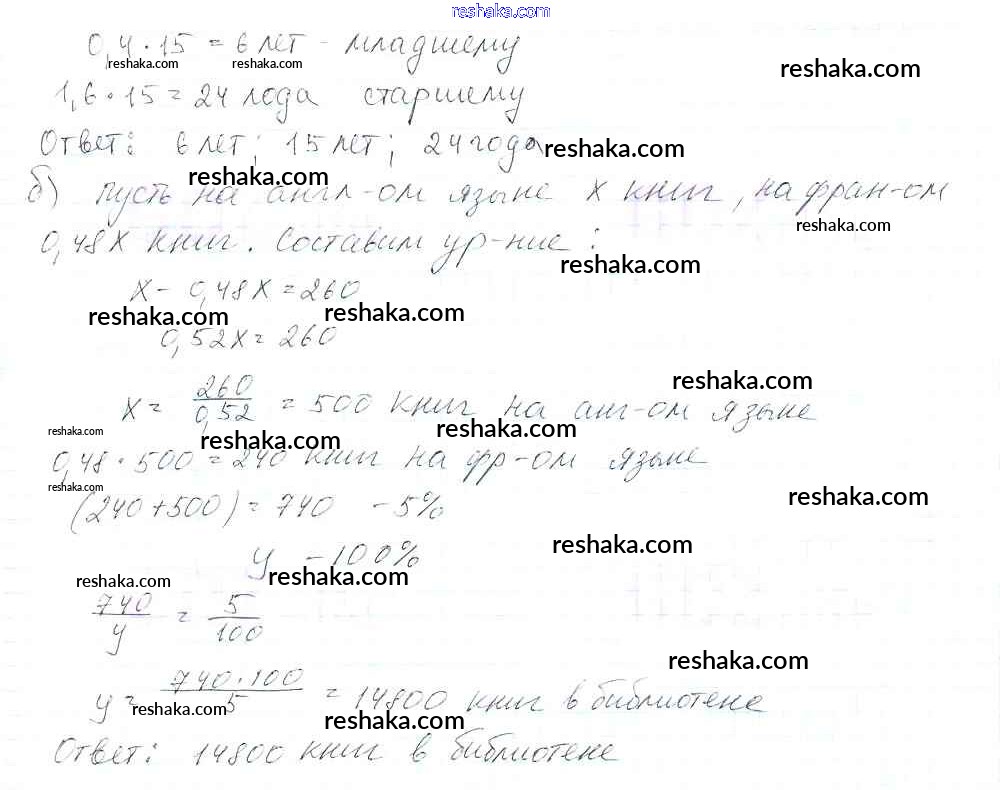 reshaka.com
0,4 · 15 = 6 лет - младшему
reshaka.com reshaka.com
reshaka.com
1,6 · 15 = 24 года старшему
Ответ: 6 лет; 15 лет; 24 года
reshaka.com
reshaka.com
б) пусть на англ-ом языке x книг, на фран-ом
reshaka.com
0,48x книг. Составим ур-ние:
reshaka.com
x - 0,48x = 260
reshaka.com reshaka.com
0,52x = 260
reshaka.com
x = 260/0,52 = 500 книг на анг-ом языке
reshaka.com reshaka.com reshaka.com
0,48 · 500 = 240 книг на фр-ом языке
reshaka.com
reshaka.com
(240 + 500) = 740 - 5%
reshaka.com
y - 100%
reshaka.com reshaka.com
740/y = 5/100
reshaka.com
y = 740·100/5 = 14800 книг в библиотеке
reshaka.com reshaka.com
Ответ: 14800 книг в библиотеке